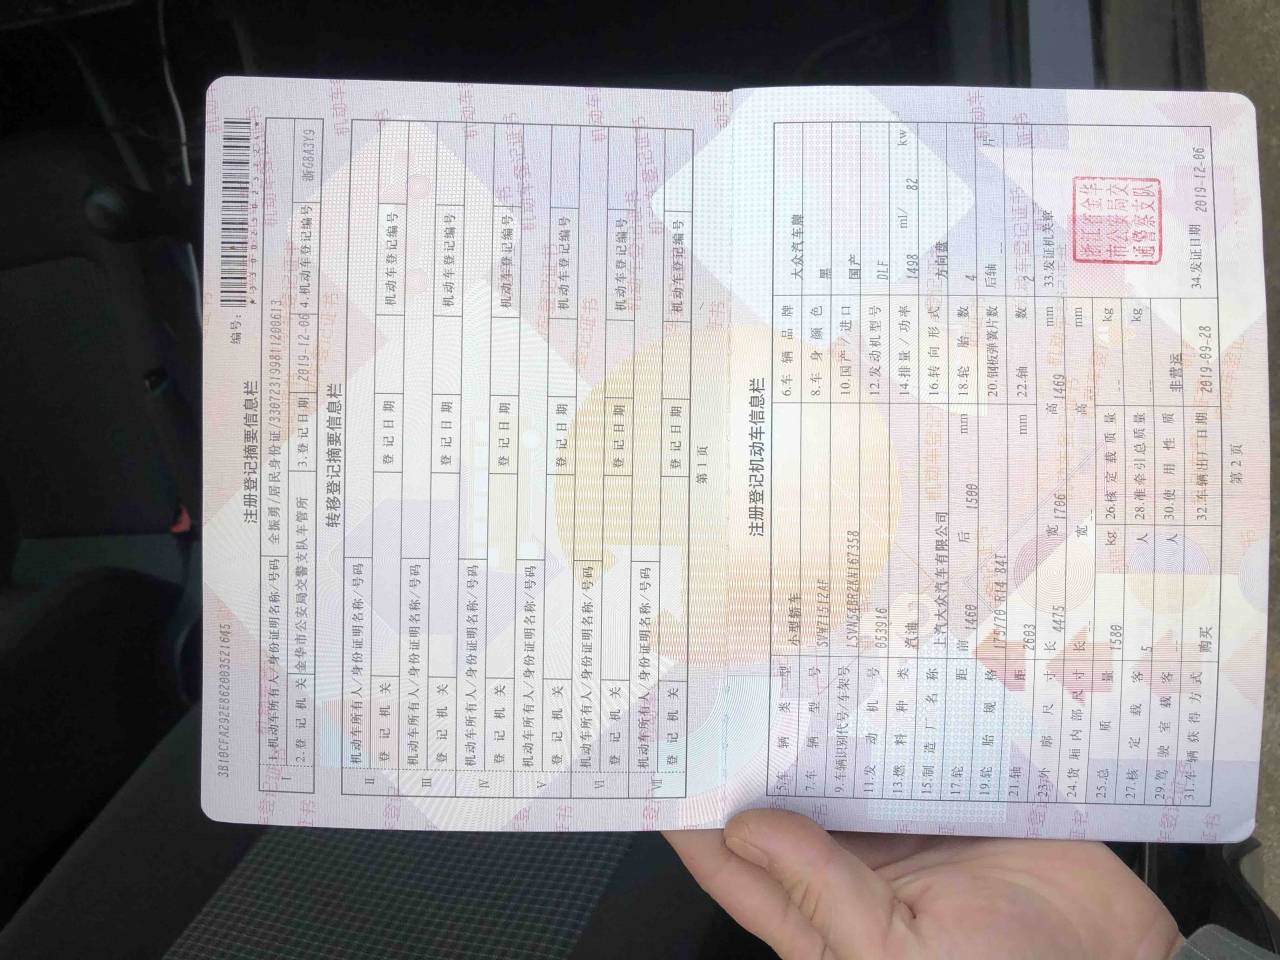 3B10CFA292E862003521645
编号:
注册登记摘要信息栏
Ⅰ 1.机动车所有人/身份证明名称/号码 全振勇/居民身份证/330723199811200613
2.登记机关 金华市公安局交警支队车管所 3.登记日期 2019-12-06 4.机动车登记编号 浙G8A3Y9
转移登记摘要信息栏
Ⅱ 机动车所有人/身份证明名称/号码
登记机关 登记日期 机动车登记编号
Ⅲ 机动车所有人/身份证明名称/号码
登记机关 登记日期 机动车登记编号
Ⅳ 机动车所有人/身份证明名称/号码
登记机关 登记日期 机动车登记编号
Ⅴ 机动车所有人/身份证明名称/号码
登记机关 登记日期 机动车登记编号
Ⅵ 机动车所有人/身份证明名称/号码
登记机关 登记日期 机动车登记编号
Ⅶ 机动车所有人/身份证明名称/号码
登记机关 登记日期 机动车登记编号
第1页
注册登记机动车信息栏
5.车辆类型 小型轿车 6.车辆品牌 大众汽车牌
7.车辆型号 SVW71512AF 8.车身颜色 黑
9.车辆识别代号/车架号 LSVNS4BR2KN167358 10.国产/进口 国产
11.发动机号 053916 12.发动机型号 DLF
13.燃料种类 汽油 14.排量/功率 1498 ml/ 82 kw
15.制造厂名称 上汽大众汽车有限公司 16.转向形式 方向盘
17.轮距 前 1460 后 1500 mm 18.轮胎数 4
19.轮胎规格 175/70 R14 84T 20.钢板弹簧片数 后轴 片
21.轴距 2603 mm 22.轴数 2
23.外廓尺寸 长 4475 宽 1706 高 1469 mm 33.发证机关章
24.货厢内部尺寸 长 -- 宽 -- 高 -- mm
浙江省金华市公安局交通警察支队
25.总质量 1580 kg 26.核定载质量 -- kg
27.核定载客 5 人 28.准牵引总质量 -- kg
29.驾驶室载客 -- 人 30.使用性质 非营运
31.车辆获得方式 购买 32.车辆出厂日期 2019-09-28 34.发证日期 2019-12-06
第2页